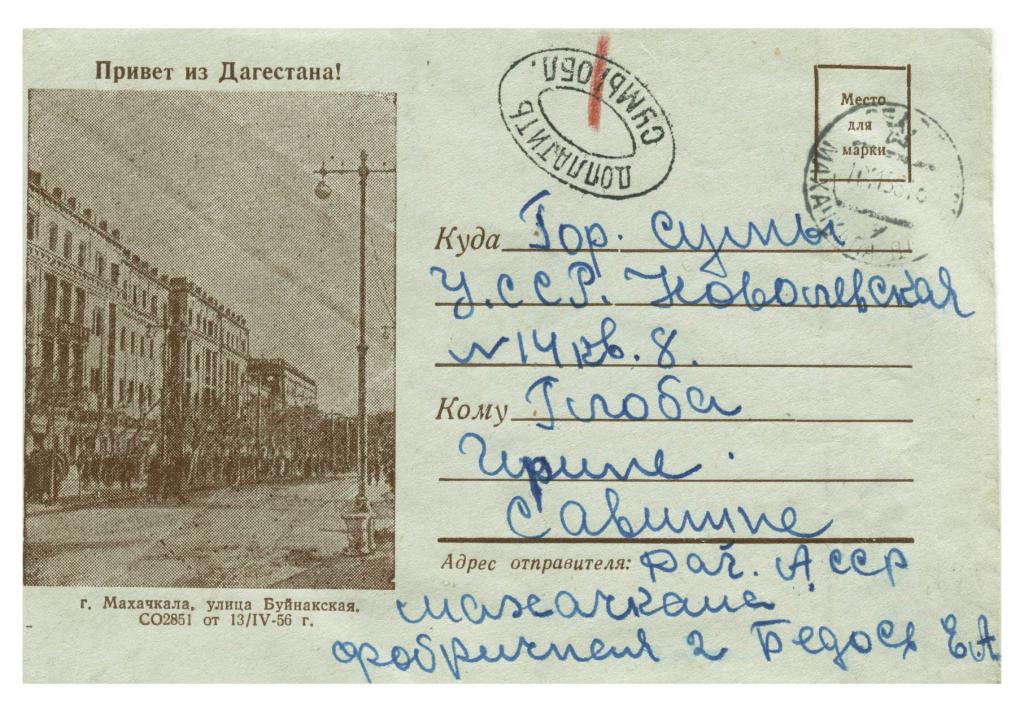 Привет из Дагестана!
ДОПЛАТИТЬ
СУМЫ ОБЛ.
Место
для
марки
МАХАЧ
Куда Гор. Сумы
У.ССР. 
№ 14 кв. 8.
Кому Глоба
Ирине
Савишне
Адрес отправителя: Даг. АССР
Махачкала
фабричная 2 Е А
г. Махачкала, улица Буйнакская.
СО2851 от 13/IV-56 г.